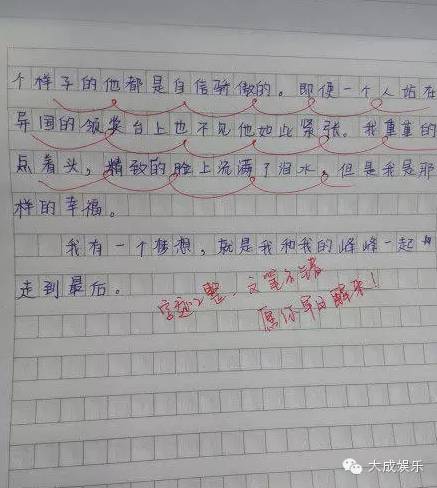 个样子的他都是自信骄傲的。即便一个人站在
异国的领奖台上也不见他如此紧张。我重重的
点着头，精致的脸上流满了泪水，但是我是那
样的幸福。
我有一个梦想，就是我和我的峰峰一起
走到最后。
字迹工整，文笔不错
愿你早日醒来！
大成娱乐